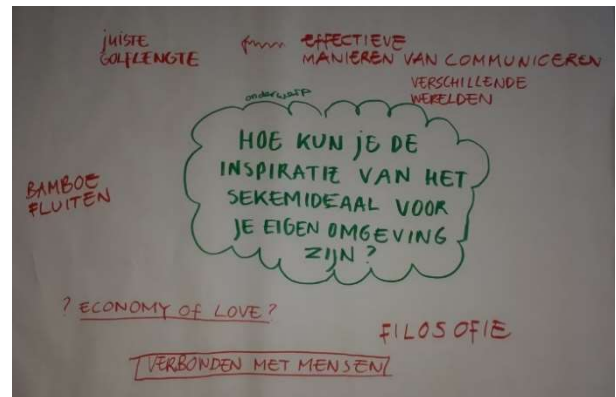 juiste
golflengte
effectieve
manieren van communiceren
verschillende
werelden
onderwerp
Hoe kun je de
inspiratie van het
Sekemideaal voor
je eigen omgeving
zijn?
Bamboe
fluiten
? Economy of Love?
Filosofie
Verbonden met mensen